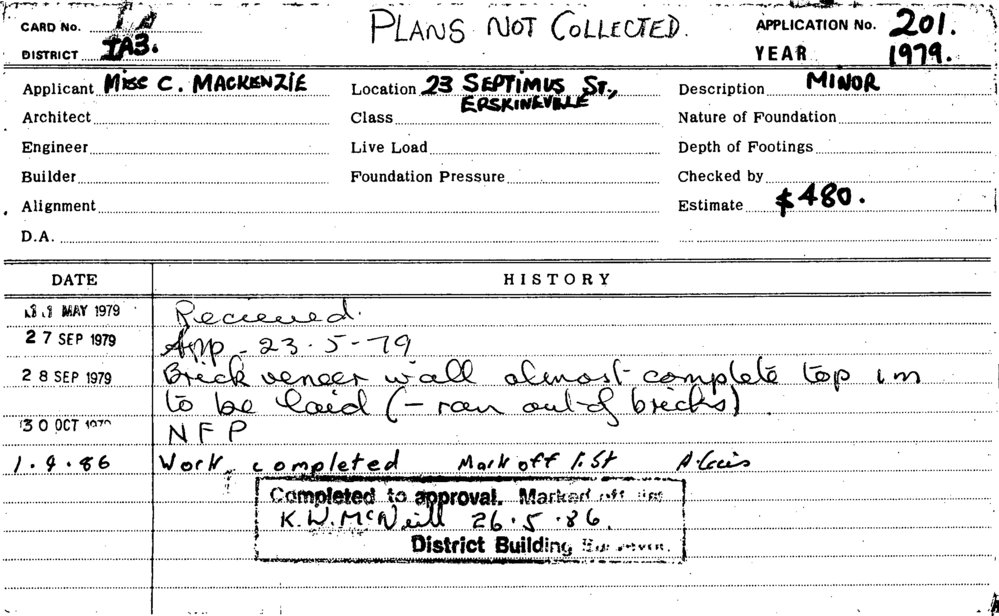 PLANS NOT COLLECTED.
CARD No.
APPLICATION No. 201.
DISTRICT IA3.
YEAR 1979.
Applicant Miss C. MACKENZIE Location 23 SEPTIMUS ST., Description MINOR
ERSKINEVILLE
Architect Class Nature of Foundation
Engineer Live Load Depth of Footings
Builder Foundation Pressure Checked by
Alignment Estimate $480.
D.A.
DATE HISTORY
MAY 1979 Received.
27 SEP 1979 App - 23-5-79
28 SEP 1979 Brick veneer wall almost complete top 1m
to be laid (- ran out of bricks)
30 OCT 1979 NFP
1.9.86 Work completed Mark off list
Completed to approval. Marked off list
K.W. McNeill 26.5.86.
District Building Surveyor.